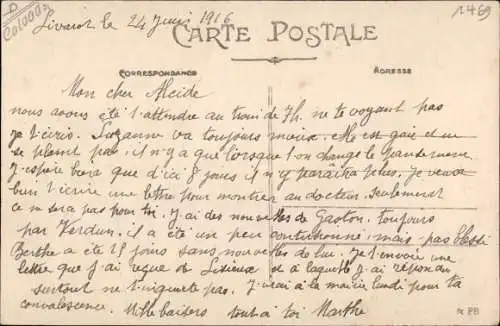 D
C010002
1469
Livarot le 24 Juin 1916
CARTE POSTALE
CORRESPONDANCE
ADRESSE
Mon cher Alcide
nous avons été t'attendre au train de 7h. ne te voyant pas
je t'écris. Suzanne va toujours mieux. Elle est gaie et ne
se plaint pas, il n'y a que lorsque l'on change le pansement
J'espère bien que d'ici 8 jours il n'y paraitra plus. Je veux
bien t'écrire une lettre pour montrer au docteur. Seulement
ce ne sera pas pour toi. J'ai des nouvelles de Gaston. toujours
par Verdun. il a été un peu contusionné, mais pas blessé
Berthe a été 15 jours sans nouvelles de lui. Je t'envoie une
lettre que j'ai reçue de Lisieux et à laquelle j'ai répondu
surtout ne t'inquiète pas. J'irai à la mairie lundi pour ta
convalescence. Mille baisers tout à toi Marthe
PB